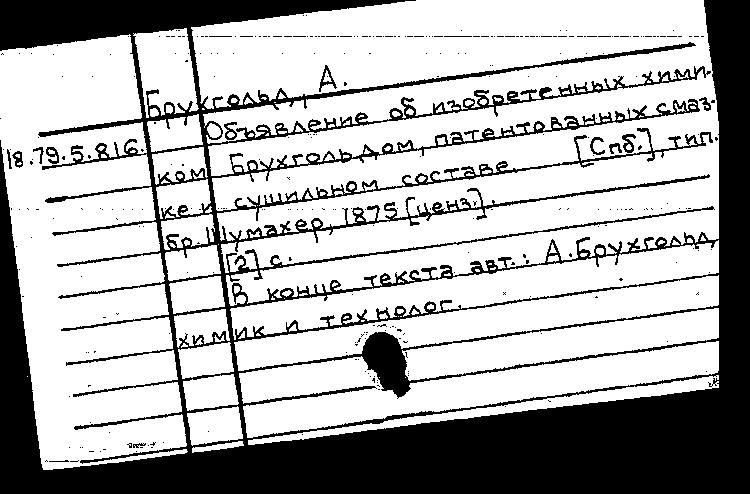 Брухгольд, А.
18.79.5.816. Объявление об изобретенных хими-
ком Брухгольдом, патентованных смаз-
ке и сушильном составе. [Спб.], тип.
бр. Шумахер, 1875 [ценз.].
[2] с.
В конце текста авт.: А. Брухгольд,
химик и технолог.